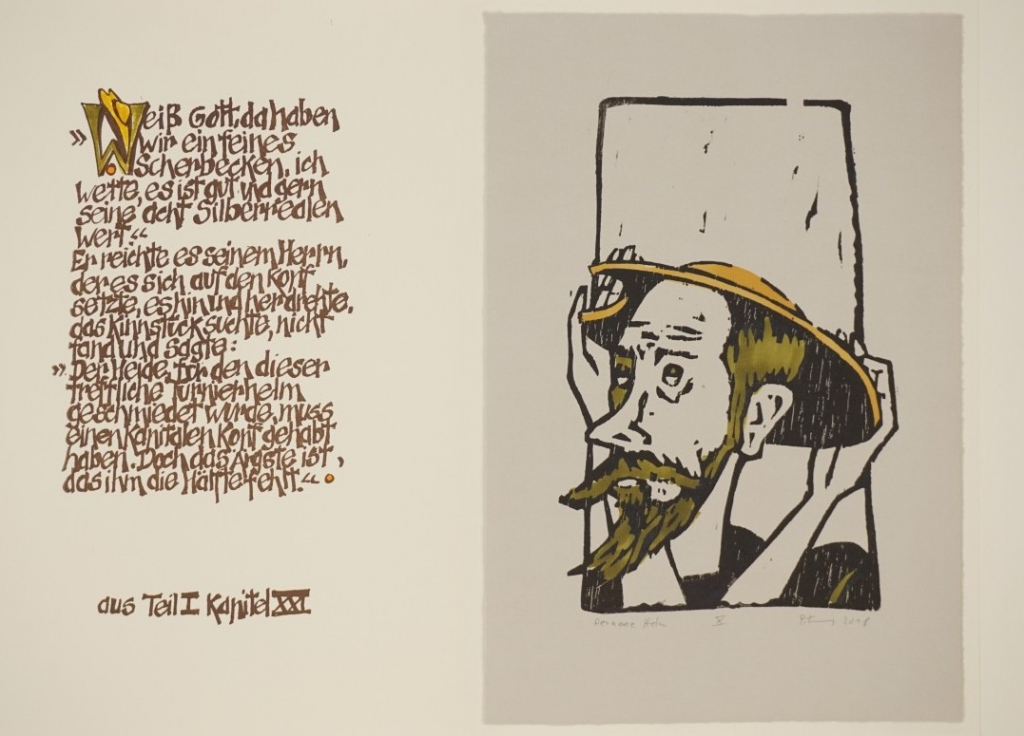 »Weiß Gott, da haben
wir ein feines
Scherbecken, ich
wette, es ist gut und gern
seine acht Silberrealen
wert.“
Er reichte es seinem Herrn,
der es sich auf den Kopf
setzte, es hin und her drehte,
das Kinnstück suchte, nicht
fand und sagte:
»Der Heide, für den dieser
treffliche Turnierhelm
geschmiedet wurde, muss
einen kapitalen Kopf gehabt
haben. Doch das Ärgste ist,
das ihm die Hälfte fehlt.“
aus Teil I Kapitel XXI
Helm X